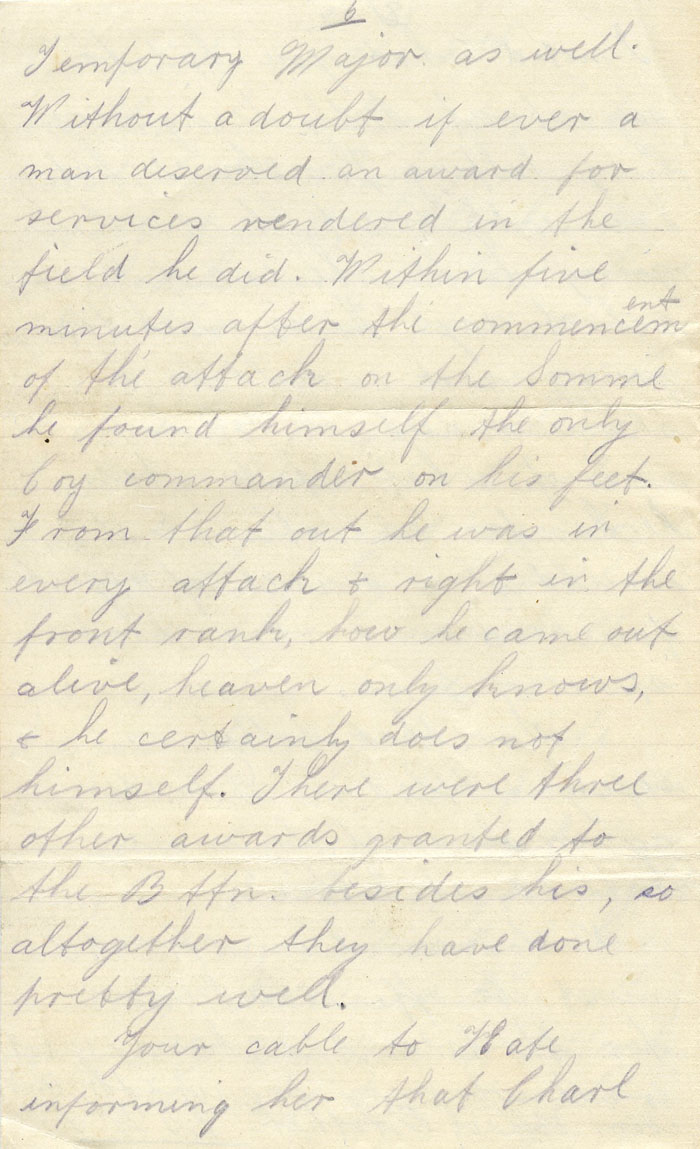 6
Temporary Major as well.
Without a doubt if ever a
man deserved an award for
services rendered in the
field he did. Within five
minutes after the commencement
of the attack on the Somme
he found himself the only
Coy commander on his feet.
From that out he was in
every attack & right in the
front rank, how he came out
alive, heaven only knows,
& he certainly does not
himself. There were three
other awards granted to
the Bttn. besides his, so
altogether they have done
pretty well.
Your cable to Kate
informing her that Charl